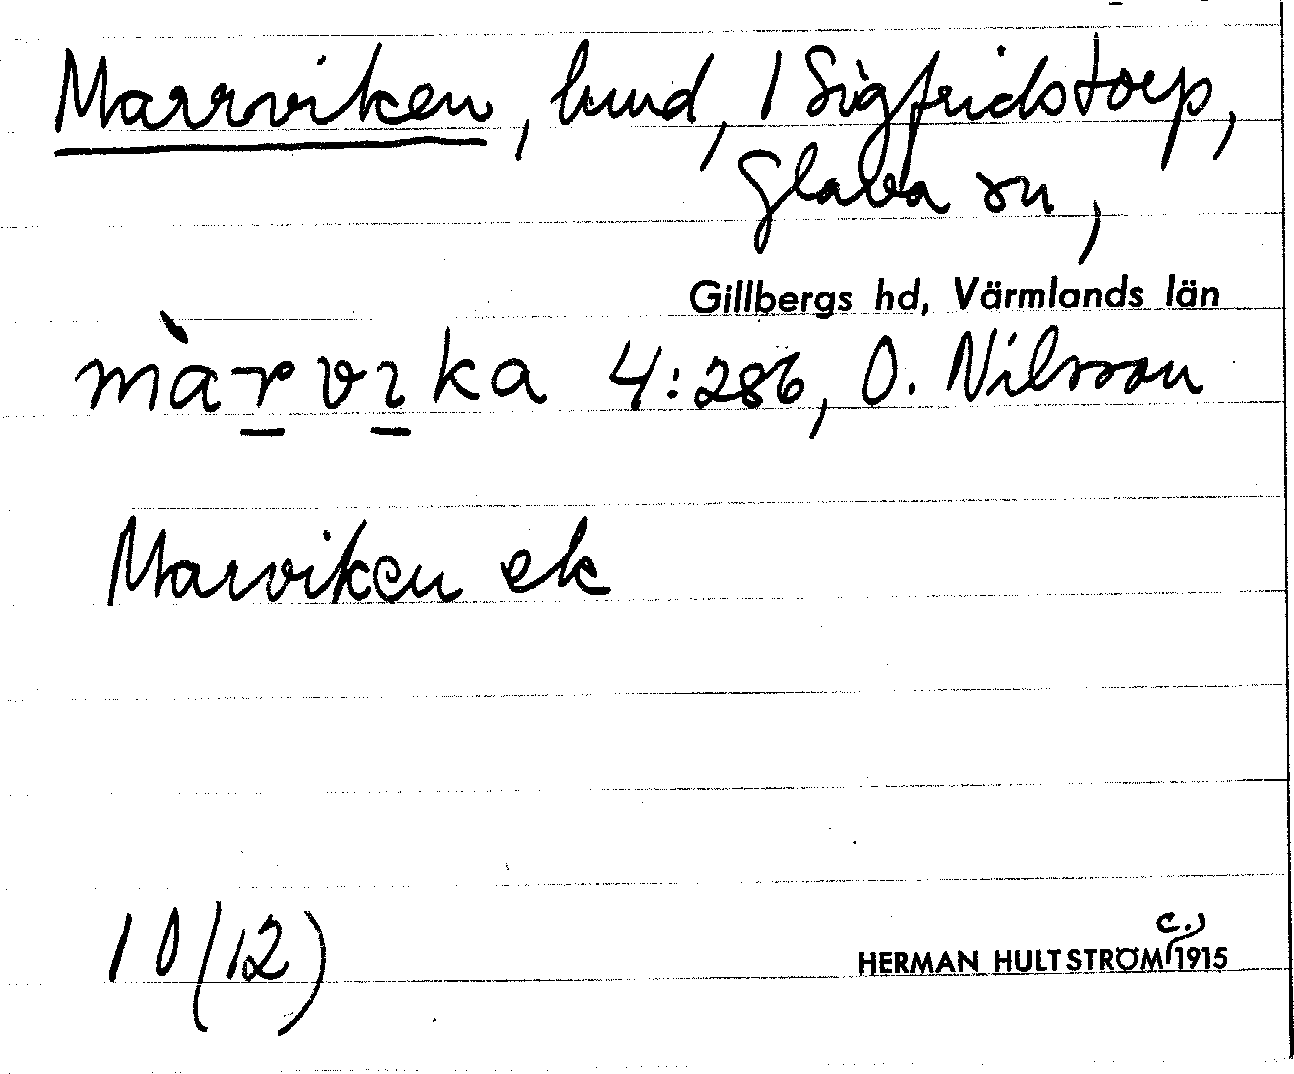 Marrviken, lund, 1 Sigfridstorp,
Glava sn,
Gillbergs hd, Värmlands län
màrvıka 4:286, O. Nilsson
Marviken ek
10 (12)
c.)
HERMAN HULTSTRÖM 1915